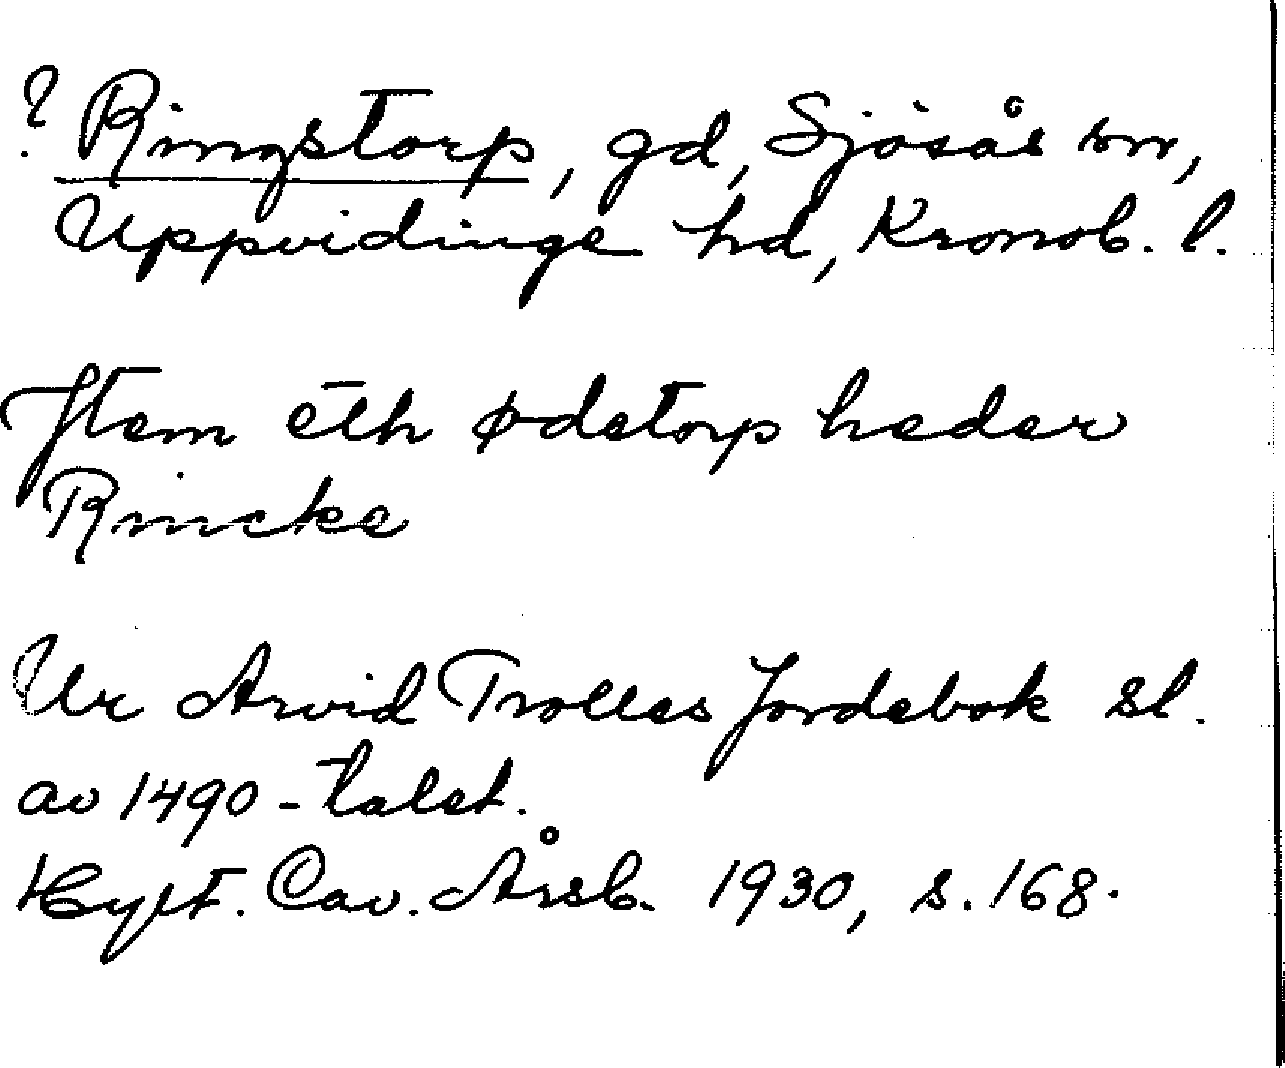 ? Ringstorp, gd, Sjösås sn,
Uppvidinge hd, Kronob. l.
Item eth ødetorp heder
Rincke
Ur Arvid Trolles Jordebok sl.
av 1490-talet.
Hylt. Cav. Årsb. 1930, s. 168.